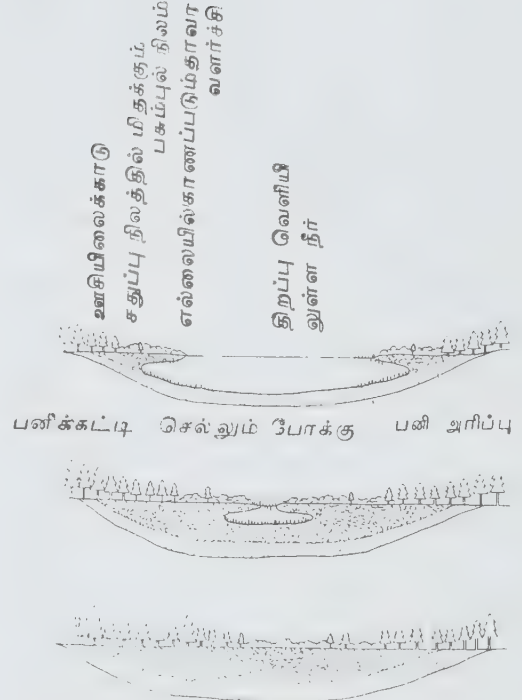 ஊசியிலைக்காடு
சதுப்பு நிலத்தில் மிதக்கும்
பசும்புல் நிலம்
எல்லையில்காணப்படும்தாவர
வளர்ச்சி
திறப்பு வெளியி
லுள்ள நீர்
பனிக்கட்டி செல்லும் போக்கு பனி அரிப்பு